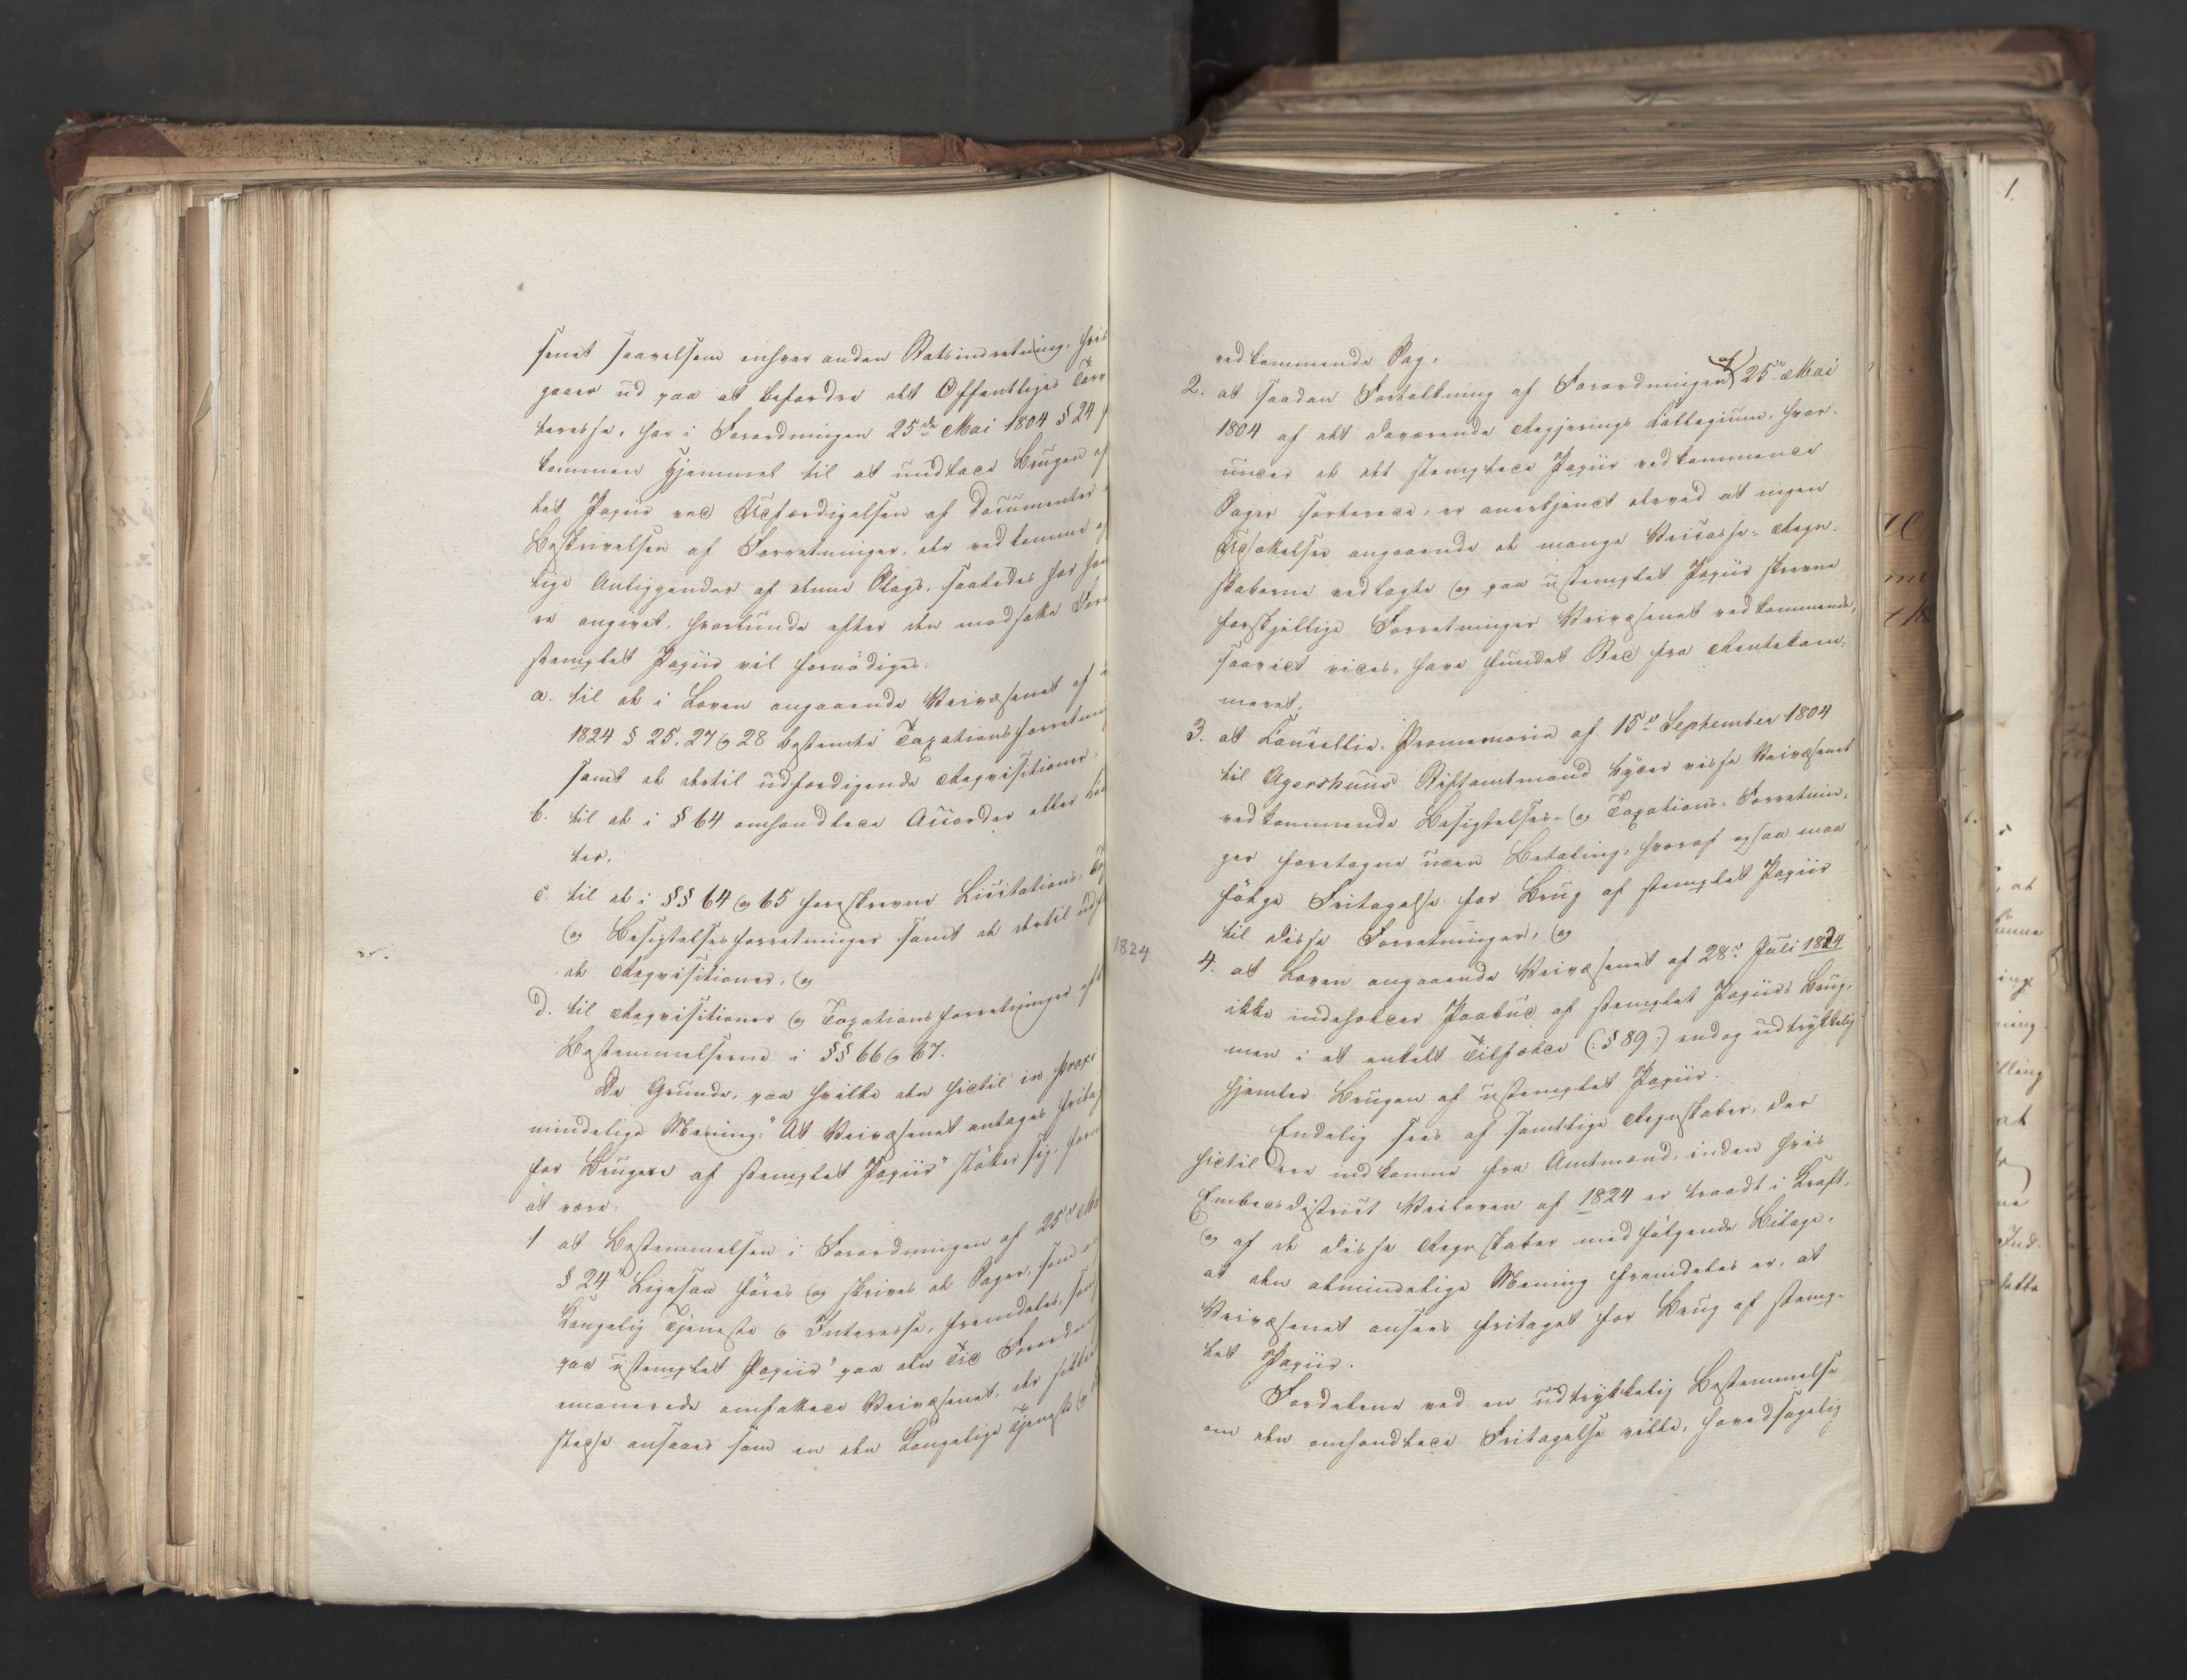 senet saavelsom enhver anden Statsindretning, hvis
gaaer ud paa at befordre det Offentliges Tarv
teresse, har i Forordningen 25de Mai 1804 § 24
kommen Hjemmel til at undlade Brugen af
let Papiir ved Udfærdigelsen af Documenter
Beskrivelsen af Forretninger, der vedkomme
lige Anliggender af denne Slags, saaledes har
re angivet, hvorlunde efter den modsatte For
stemplet Papiir vil fornödiges:
a. til de i Loven angaaende Veivæsenet af
1824 § 25, 27 og 28 bestemte Taxationsforretnin
samt de dertil udfærdigende Reqvisitioner,
b. til de i § 64 omhandlede Accorder eller
ter,
c. til de i §§ 64 og 65 foreskrevne Licitations-
og Besigtelsesforretninger samt de dertil udf
de Reqvisitioner, og
d. til Reqvisitioner og Taxationsforretninger eft
Bestemmelserne i §§ 66 og 67.
De Grunde, paa hvilke den hidtil in praxi
mindelige Mening: "At Veivæsenet antages fritag
for Brugen af stemplet Papiir" stötter sig, form
at være:
1 at Bestemmelsen i Forordningen af 25de Ma
§ 24 "Ligesaa föres og skrives de Sager, som
Kongelig Tjeneste og Interesse, fremdeles, som
paa ustemplet Papiir" paa den Tid Forordn
emanerede omfattede Veivæsenet, der
stedse ansaaes som en den Kongelige Tjeneste og
1824
vedkommende Sag,
2. at saadan Fortolkning af Forordningen af 25de Mai
1804 af det daværende Regjerings Collegium, hvor-
under de det stemplede Papiir vedkommende
Sager sorterede, er anerkjendt derved at ingen
Udsættelser angaaende de mange Veicasse-Regn-
skaberne vedlagte og paa ustemplet Papiir skrevne
forskjellige Forretninger Veivæsenet vedkommende,
saavidt vides, have fundet Sted fra Rentekam-
meret,
3. at Cancellie-Promemoria af 15de September 1804
til Agershuus Stiftamtmand byder visse Veivæsenet
vedkommende Besigtelses- og Taxations-Forretnin-
ger foretagne uden Betaling, hvoraf ogsaa maa
fölge Fritagelse for Brug af stemplet Papiir
til disse Forretninger, og
4. at Loven angaaende Veivæsenet af 28de Juli 1824
ikke indeholder Paabud af stemplet Papiirs Brug,
men i et enkelt Tilfælde (:§ 89:) endog udtrykkelig
hjemler Brugen af ustemplet Papiir.
Endelig sees af samtlige Regnskaber, der
hidtil ere indkomne fra Amtmænd, inden hvis
Embedsdistrict Veiloven af 1824 er traadt i Kraft,
og af de disse Regnskaber medfölgende Bilage,
at den almindelige Mening fremdeles er, at
Veivæsenet ansees fritaget for Brug af stemp-
let Papiir.
Fordelene ved en udtrykkelig Bestemmelse
om den omhandlede Fritagelse ville, hovedsagelig